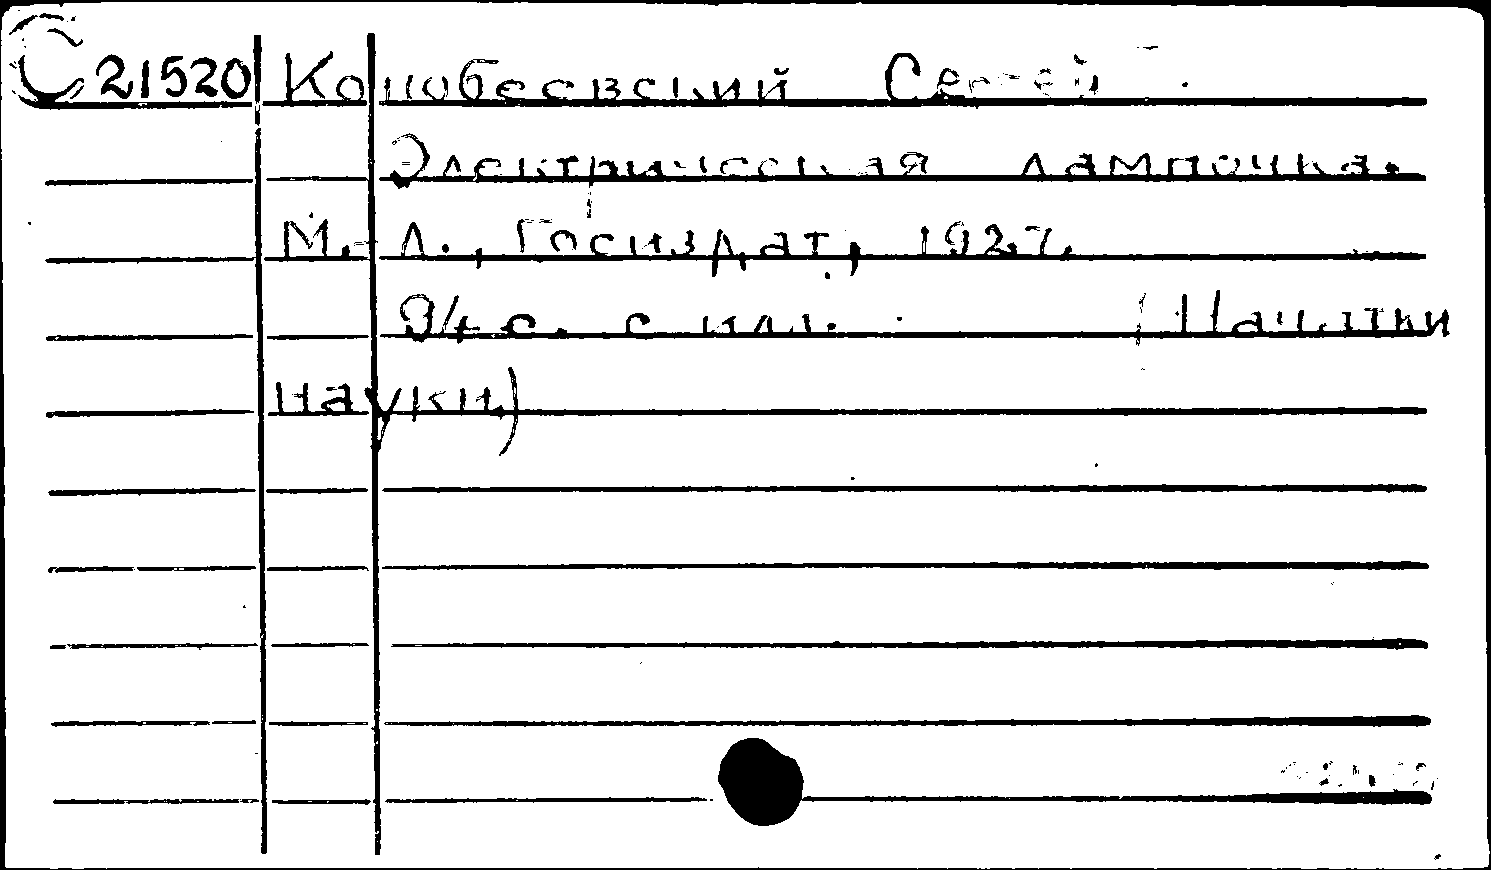 С 21520 Конобеевский Сергей
Электрическая лампочка.
М.-Л., Госиздат, 1927.
94 с. с илл. (Начатки
науки.)